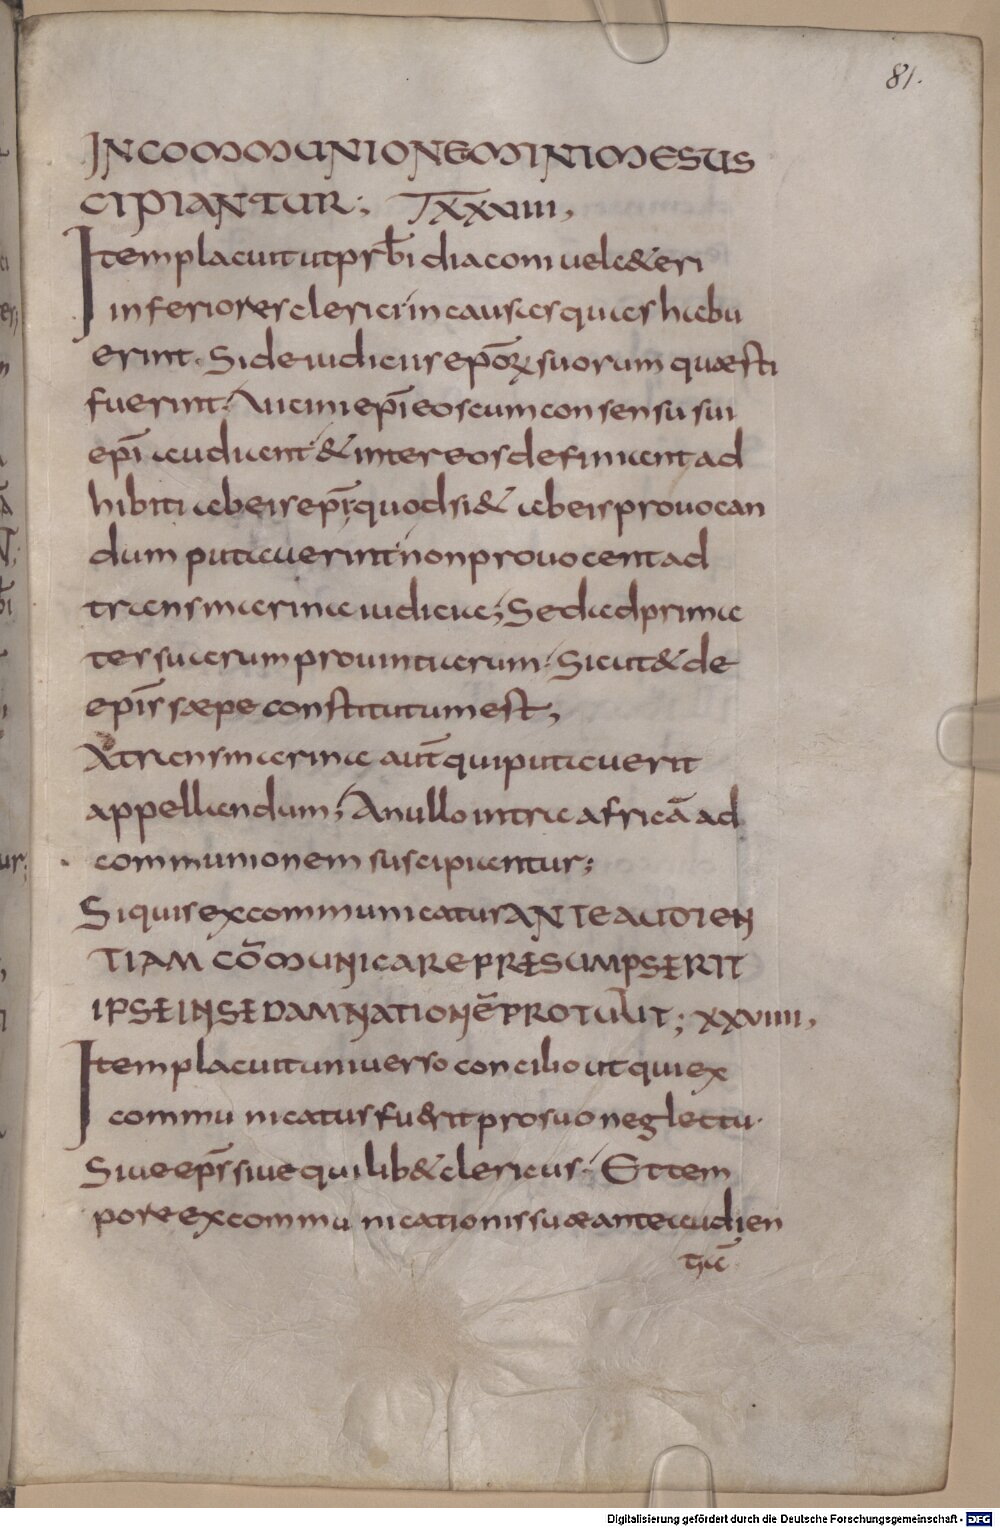 81.
INCOMMUNIONEMINIMESUS
CIPIANTUR:, TXXXVIIII,
Itemplacuitutprb̄i diaconi uelc&eri
inferioresclerici incausisquas habu
erint. Sideiudiciis ep̄oꝝ suorum quæsti
fuerint; Vicini ep̄i eoscumconsensu sui
ep̄i audiant & intereosdefiniantad
hibiti abeisep̄i; quodsi& abeisprouocan
dum putauerint nonprouocentad
transmarina iudicia; Sedadprima
tessuarumprouintiarum. Sicut&de
ep̄is sæpe constitutumest,
Adtransmarina aut̄ quiputauerit
appellandum; Anullo intra africā ad
communionem suscipiantur;
Siquisexcommunicatus ANTEAUDIEN
TIAM CŌMUNICAREPRESUMPSERIT
IPSEINSEDAMNATIONĒPROTULIT; XXVIIII,
Itemplacuituniuerso concilio utquiex
communicatusfu&rit prosuoneglectu.
Siueep̄s siuequilib& clericus. Ettem
poreexcommunicationissuæanteaudien
tiā
Digitalisierung gefördert durch die Deutsche Forschungsgemeinschaft - DFG